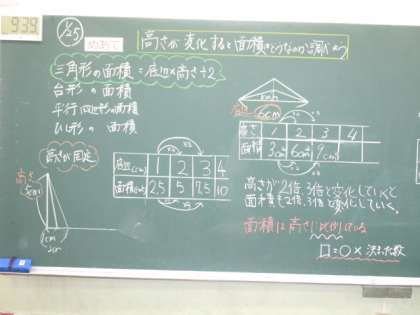 939
1/25
めあて 高さが変化すると面積はどうなのか調べよう
三角形の面積=底辺×高さ÷2
台形の面積
平行四辺形の面積
ひし形の面積
高さが固定
高さ
5cm
1cm
2cm
×2 ×3
底辺(cm) 1 2 3 4
面積(cm²) 2.5 5 7.5 10
×2 ×3
底辺 6cm
高さ 1 2 3 4
面積 3cm² 6cm² 9cm²
高さが2倍、3倍と変化していくと
面積も2倍、3倍と変化していく。
面積は高さに比例している
□=○×決まった数